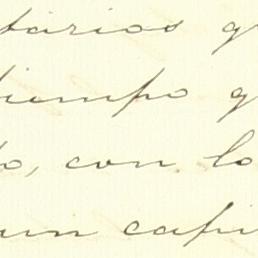 tarios q
tiempo q
o, con lo
un capi